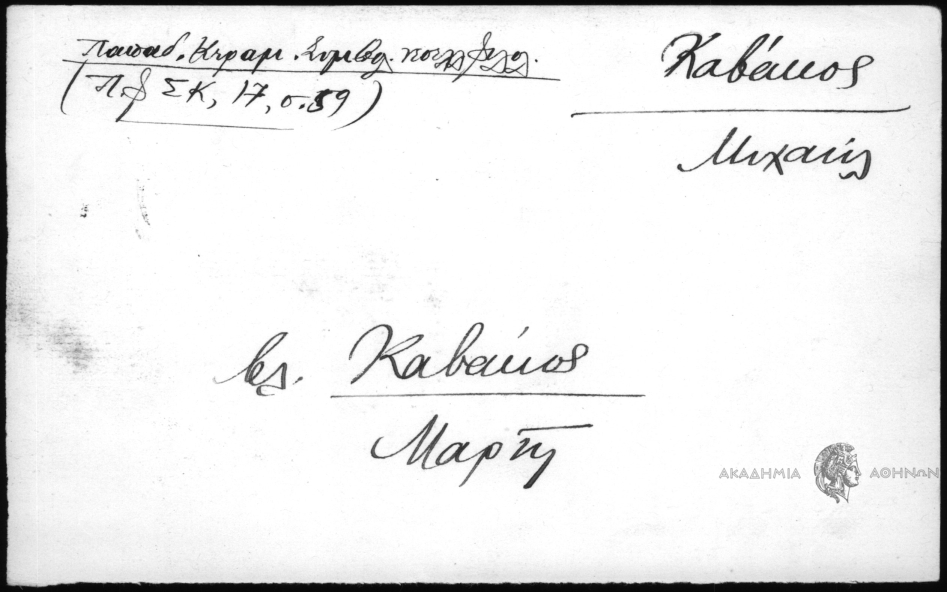 Παπαδ. Κεραμ. Συμβολ.
(Πφ ΣΚ, 17, σ. 59)
Καβάκος
Μιχαήλ
βλ. Καβάκος
Μαρτη
ΑΚΑΔΗΜΙΑ ΑΘΗΝΩΝ